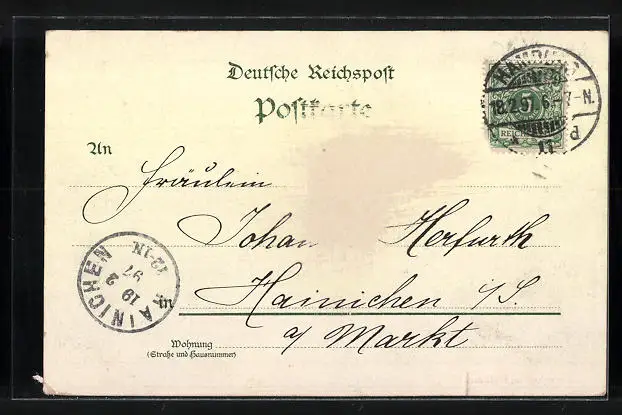 Deutsche Reichspost
Postkarte
HAMBURG
18.2.97. 6-7-N.
REICHSPOST
An
Fräulein
Johan Herfurth
in Hainichen i/S.
a/ Markt
HAINICHEN
19 2
97
12-1N
Wohnung
(Straße und Hausnummer)